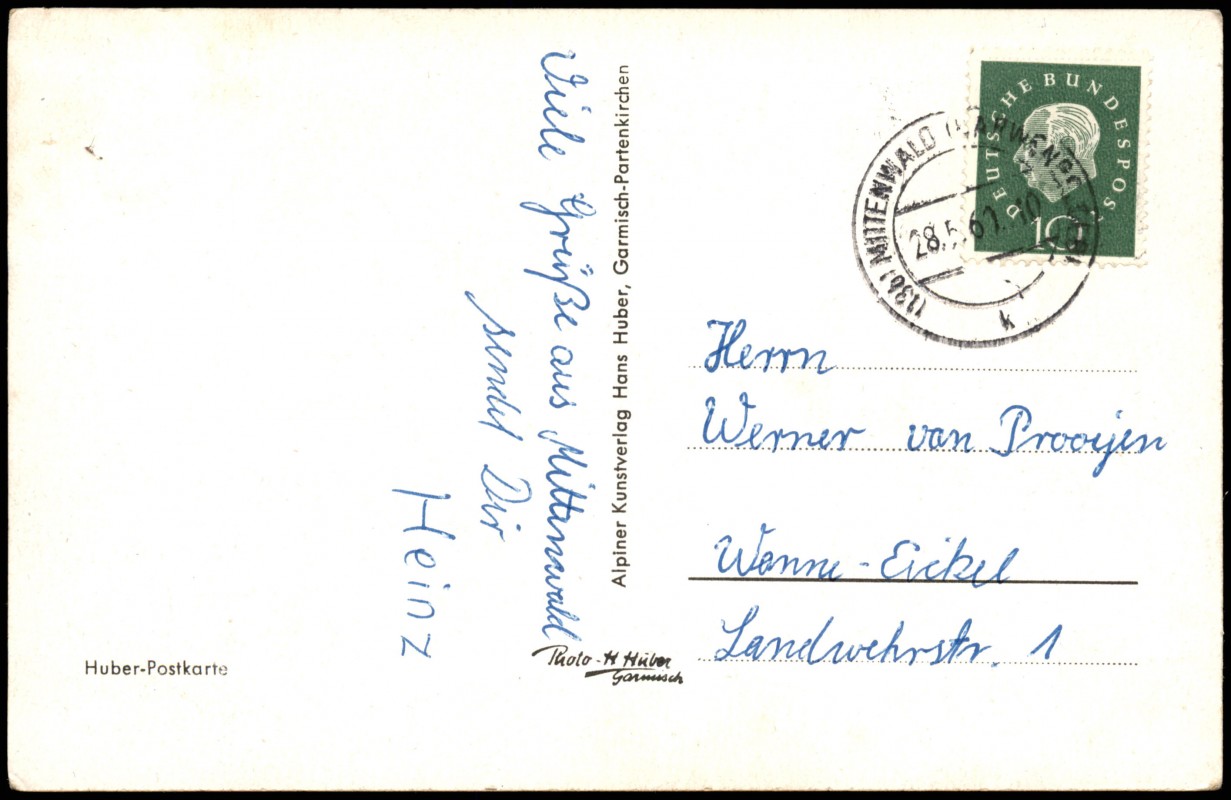 Viele Grüße aus Mittenwald
sendet Dir
Heinz
Alpiner Kunstverlag Hans Huber, Garmisch-Partenkirchen
Huber-Postkarte
Photo-H Huber
Garmisch
DEUTSCHE BUNDESPOS
10
(13b) MITTENWALD
28.5.62.-10
k
Herrn
Werner van Prooijen
Wanne-Eickel
Landwehrstr. 1